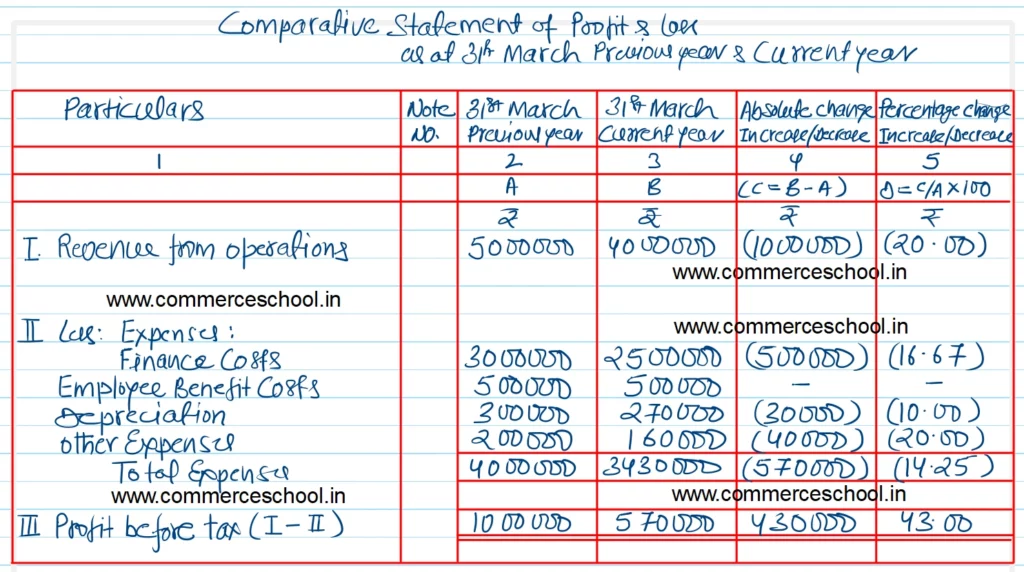 Comparative Statement of Profit & loss
as at 31st March Previous year & Current year
Particulars Note No. 31st March Previous year 31st March Current year Absolute change Increase/Decrease Percentage change Increase/Decrease
1 2 3 4 5
A B (C = B - A) D = C/A × 100
₹ ₹ ₹ ₹
I. Revenue from operations 5000000 4000000 (1000000) (20.00)
www.commerceschool.in
www.commerceschool.in
II Less: Expenses:
www.commerceschool.in
Finance Costs 3000000 2500000 (500000) (16.67)
Employee Benefit Costs 500000 500000 — —
Depreciation 300000 270000 (30000) (10.00)
Other Expenses 200000 160000 (40000) (20.00)
Total Expenses 4000000 3430000 (570000) (14.25)
www.commerceschool.in www.commerceschool.in
III Profit before tax (I - II) 1000000 570000 430000 43.00